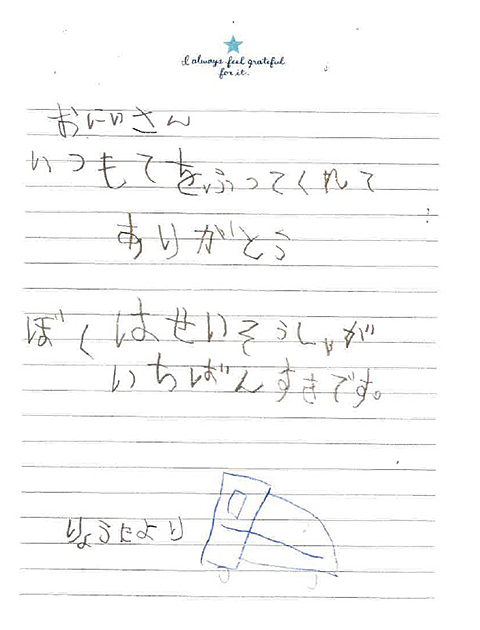 I always feel grateful
for it.
おにいさん
いつもてをふってくれて
ありがとう
ぼくはせいそうしゃが
いちばんすきです。
りょうたより